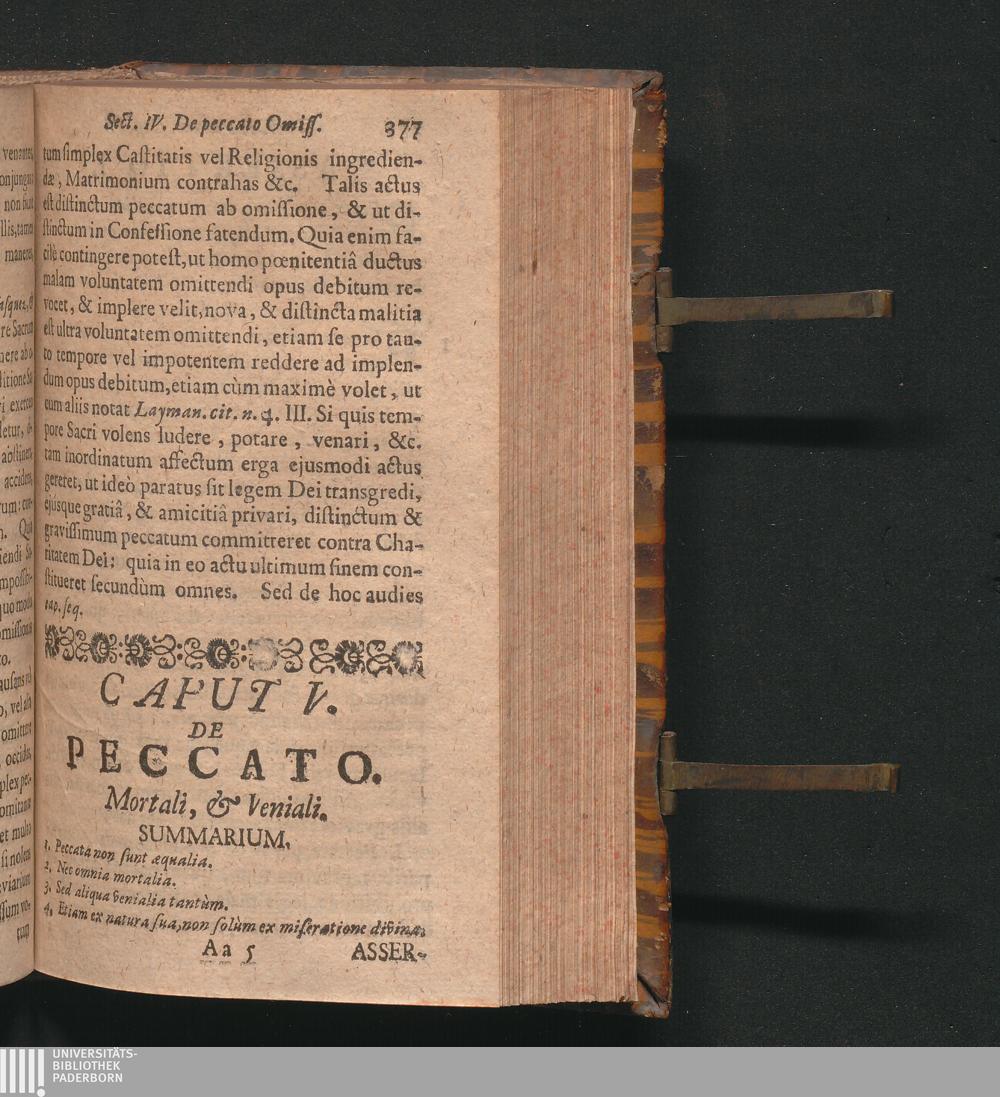 Sect. IV. De peccato Omiss. 377
tum simplex Castitatis vel Religionis ingredien-
dæ, Matrimonium contrahas &c. Talis actus
est distinctum peccatum ab omissione, & ut di-
stinctum in Confessione fatendum. Quia enim fa-
cilè contingere potest, ut homo pœnitentiâ ductus
malam voluntatem omittendi opus debitum re-
vocet, & implere velit, nova, & distincta malitia
est ultra voluntatem omittendi, etiam se pro tan-
to tempore vel impotentem reddere ad implen-
dum opus debitum, etiam cùm maximè volet, ut
cum aliis notat Layman. cit. n. 4. III. Si quis tem-
pore Sacri volens ludere, potare, venari, &c.
tam inordinatum affectum erga ejusmodi actus
gereret, ut ideò paratus sit legem Dei transgredi,
ejusque gratiâ, & amicitiâ privari, distinctum &
gravissimum peccatum committeret contra Cha-
ritatem Dei: quia in eo actu ultimum finem con-
stitueret secundùm omnes. Sed de hoc audies
cap. seq.
CAPUT V.
DE
PECCATO.
Mortali, & Veniali.
SUMMARIUM.
1. Peccata non sunt æqualia.
2. Nec omnia mortalia.
3. Sed aliqua venialia tantùm.
4. Etiam ex natura sua, non solùm ex miseratione divina.
Aa 5 ASSER-
UNIVERSITÄTS-
BIBLIOTHEK
PADERBORN